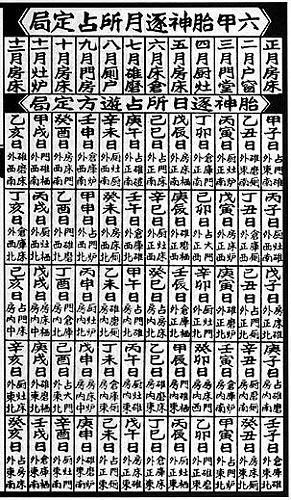 六甲胎神逐月所占定局
正月房床
二月戶窗
三月門堂
四月厨灶
五月房床
六月床倉
七月碓磨
八月厠戶
九月門房
十月房床
十一月炉灶
十二月房床
胎神逐日所占遊方定局
甲子日 占門碓 外東南
乙丑日 碓磨厠 外東南
丙寅日 厨灶炉 外正南
丁卯日 倉庫門 外正南
戊辰日 房床栖 外正南
己巳日 占門床 外正南
庚午日 占碓磨 外正南
辛未日 厨灶厠 外西南
壬申日 倉庫炉 外西南
癸酉日 房床門 外西南
甲戌日 門碓栖 外西南
乙亥日 碓磨床 外西南
丙子日 厨灶碓 外西南
丁丑日 倉庫厠 外西南
戊寅日 房床炉
己卯日 占大門 外正西
庚辰日 碓磨栖 外正西
辛巳日 厨灶床 外正西
壬午日 倉庫碓 外西北
癸未日 房床厠 外西北
甲申日 占門炉 外西北
乙酉日 碓磨門 外西北
丙戌日 厨灶栖 外西北
丁亥日 倉庫床 外西北
戊子日 房床碓 外正北
己丑日 占門厠 外正北
庚寅日 碓磨炉 外正北
辛卯日 厨灶門 外正北
壬辰日 倉庫栖 外正北
癸巳日 占房床 房内北
甲午日 占門碓 房内北
乙未日 碓磨厠 房内北
丙申日 厨灶炉 房内北
丁酉日 倉庫門 房内北
戊戌日 房床栖 房内中
己亥日 占門床 房内中
庚子日 占碓磨 房内南
辛丑日 厨灶厠 房内南
壬寅日 倉庫炉 房内南
癸卯日 房床門 房内南
甲辰日 房内東
乙巳日 碓磨床 房内東
丙午日 厨灶碓 房内東
丁未日 倉庫厠 房内東
戊申日 房床炉 房内中
己酉日 占大門 外東北
庚戌日 碓磨栖 外東北
辛亥日 厨灶床 外東北
壬子日 倉庫碓 外東北
癸丑日 房床厠 外東北
甲寅日 占門炉 外東北
乙卯日 碓磨門 外正東
丙辰日 厨灶栖 外正東
丁巳日 倉庫床 外正東
戊午日 房床碓 外正東
己未日 占門厠 外正東
庚申日 碓磨炉 外東南
辛酉日 厨灶門 外東南
壬戌日 倉庫栖 外東南
癸亥日 占房床 外東南